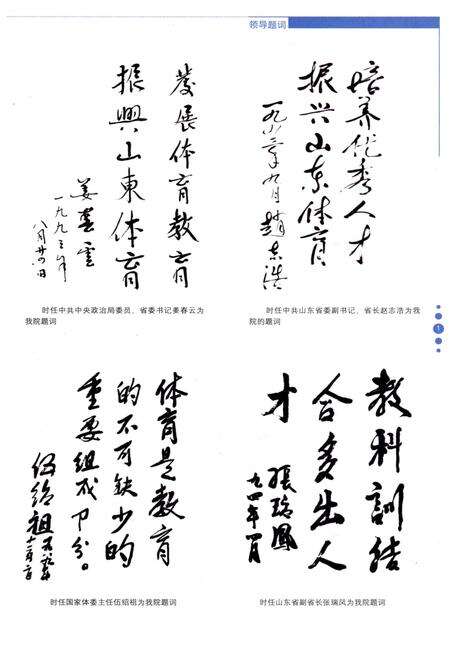 领导题词
發展体育教育
振興山東体育
姜春雲
一九九三年
八月廿四日
时任中共中央政治局委员、省委书记姜春云为
我院题词
培养优秀人才
振兴山东体育
九月 趙志浩
时任中共山东省委副书记、省长赵志浩为我
院的题词
1
体育是教育
的不可缺少的
重要组成部分。
伍绍祖
时任国家体委主任伍绍祖为我院题词
教科訓结
合多出人
才
張瑞鳳
九四年
时任山东省副省长张瑞凤为我院题词